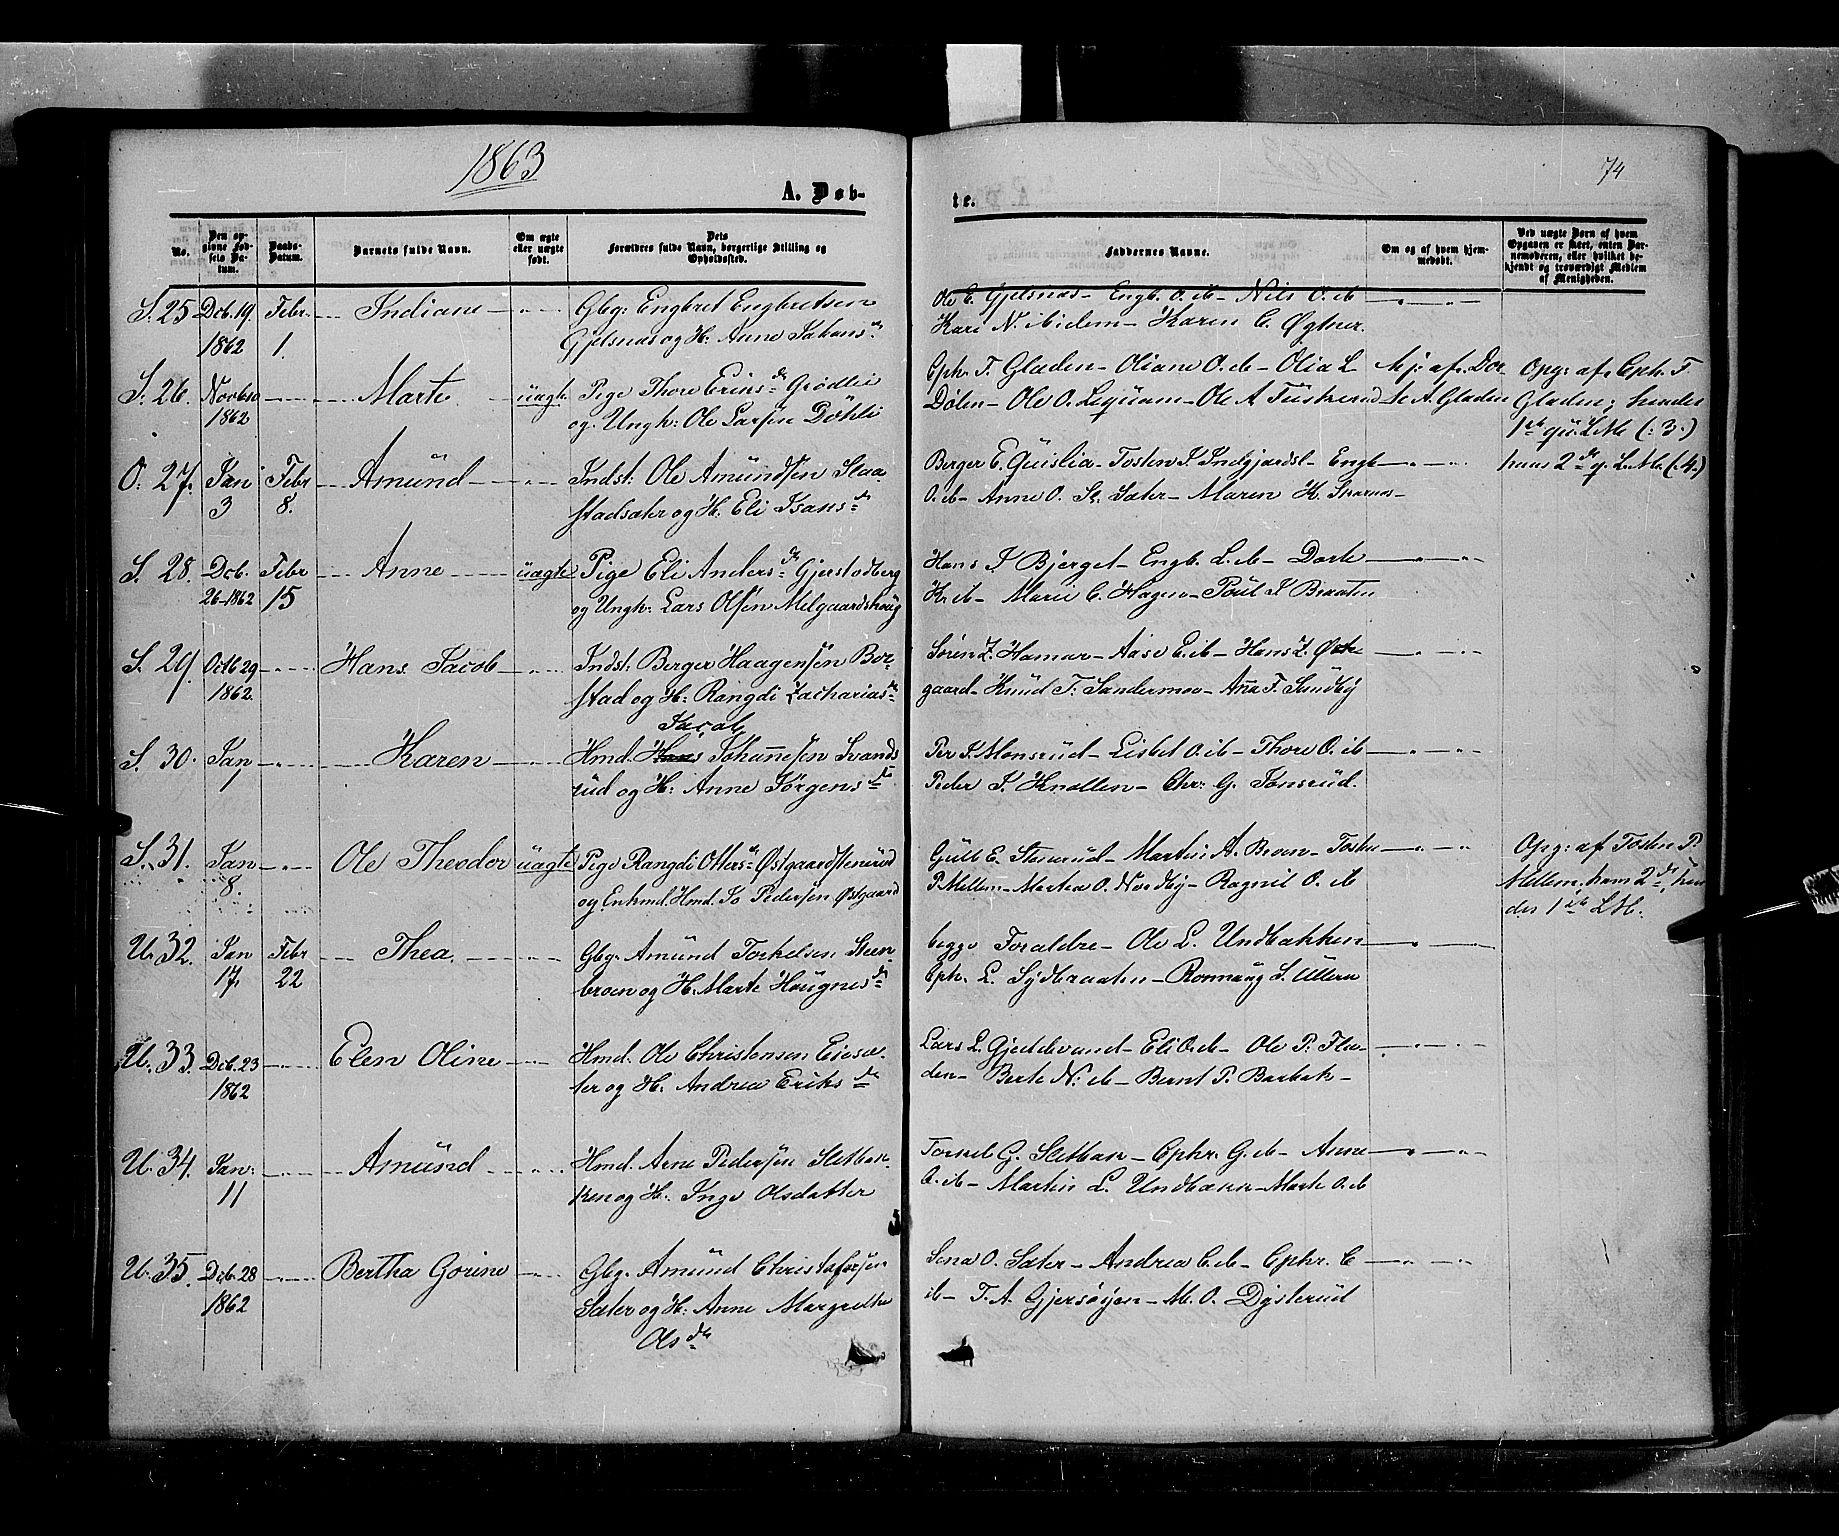 1863
74
A. Døb-
te.
No.
Den op-
givne Fød-
sels Da-
tum.
Daabs-
Datum.
Barnets fulde Navn.
Om ægte
eller uægte
født.
Dets
Forældres fulde Navn, borgerlige Stilling og
Opholdssted.
Faddernes Navne.
Om og af hvem hjem-
medøbt.
Ved uægte Børn af hvem
Opgaven er skeet, enten Bar-
nemoderen, eller hvilket be-
kjendt og troværdigt Medlem
af Menigheden.
S. 25 Dcb. 19 Febr. Indiane Gbg: Engbret Engbretsen
1862 1. Gjelsnæs og H: Anne Johans dr
Ole E. Gjelsnæs - Engb. O. ib - Nils O. ib
Kari N. ibidem - Karen C. Øgtner.
S. 26. Novb 10 Marte uægte Pige Thore Erics dr Grødlei
1862 og Ungk: Ole Larsen Döhli
Eph. F. Gladen - Oliane O. ib - Olia L Hj: af Dor- Opg: af Eph. F
Dölen - Ole O. - Ole A. te A. Gladen Gladen; hendes
1ste LM (: 3.)
O. 27. Jan Febr Amünd Indst: Ole Amündsen Staa-
3 8. stadsæter og H: Eli Isans dr
Berger E. Güislia - Tosten I. - Engb hans 2den g. L.M. (: 4.)
O. ib - Anne O. St. Sæter - Maren H.
S. 28. Dcb. Febr Anne uægte Pige Eli Anders dr Gjerstadberg
26-1862 15 og Ungk: Lars Olsen Melgaardshaug
Hans I Bjerget - Engb. L. ib - Dorte
K. ib - Marie C. Hagen - Poül I Braaten
S. 29. Octb 29 Hans Jacob Indst: Berger Haagensen Bor-
1862. stad og H: Rangdi Zacharias dr
Sören Z. Hamar - Aase E. ib - Hans Z. Østre
gaard - Knüd T. Sandermoe - Aña F. Sündby
Jacob
S. 30. Jan Karen Hmd. Hans Johañesen Svands
1 rud og H: Anne Jörgens dr
Per I. Monsrüd - Lisbet O. ib - Thore O. ib
Peder I. Knollen - Chr: G. Tonsrüd.
S. 31. Jan Ole Theodor uægte Pige Rangdi Otters dr Østgaardstenrüd
8. og Enkmd. Hmd. Jo Pedersen Østgaard
Güll E. Stenrüd - Martin A. Broen - Tosten Opg: af Tosten P.
P. Mellem - Martea O. Nordby - Ragnil O. ib Mellem, hans 2den, hen
des 1ste LM.
U. 32. Jan Febr Thea. Gbg. Amünd Torkelsen Steen-
17, 22 broen og H. Marte Haugnes dr
begge Forældre - Ole L. Undbakken
Eph. L. Sydbraaten - Ronnaug S. Ullern
U. 33. Dcb. 23 Elen Oline Hmd. Ole Christensen Eiesæ-
1862 ter og H. Andrea Eriks dr
Lars L. Gjeddevand - Eli O. ib - Ole P. Fla-
den - Berte N. ib - Bernt P. Barbak -
U. 34. Jan: Amünd Hmd. Arne Pedersen Sletbak-
11 ken og H. Inge Olsdatter
Torkel G. Sletbak - Ephr. G. ib - Anne
O. ib - Martin L. Undbakk - Marte O. ib
U. 35. Dcb. 28 Bertha Gorine Gbg. Amünd Christofersen
1862 Sæter og H. Anne Margrethe
Ols dr
Sena O. Sæter - Andrea C. ib - Ephr. C
ib - T. A. Gjersøyen - M. O. Dysterüd